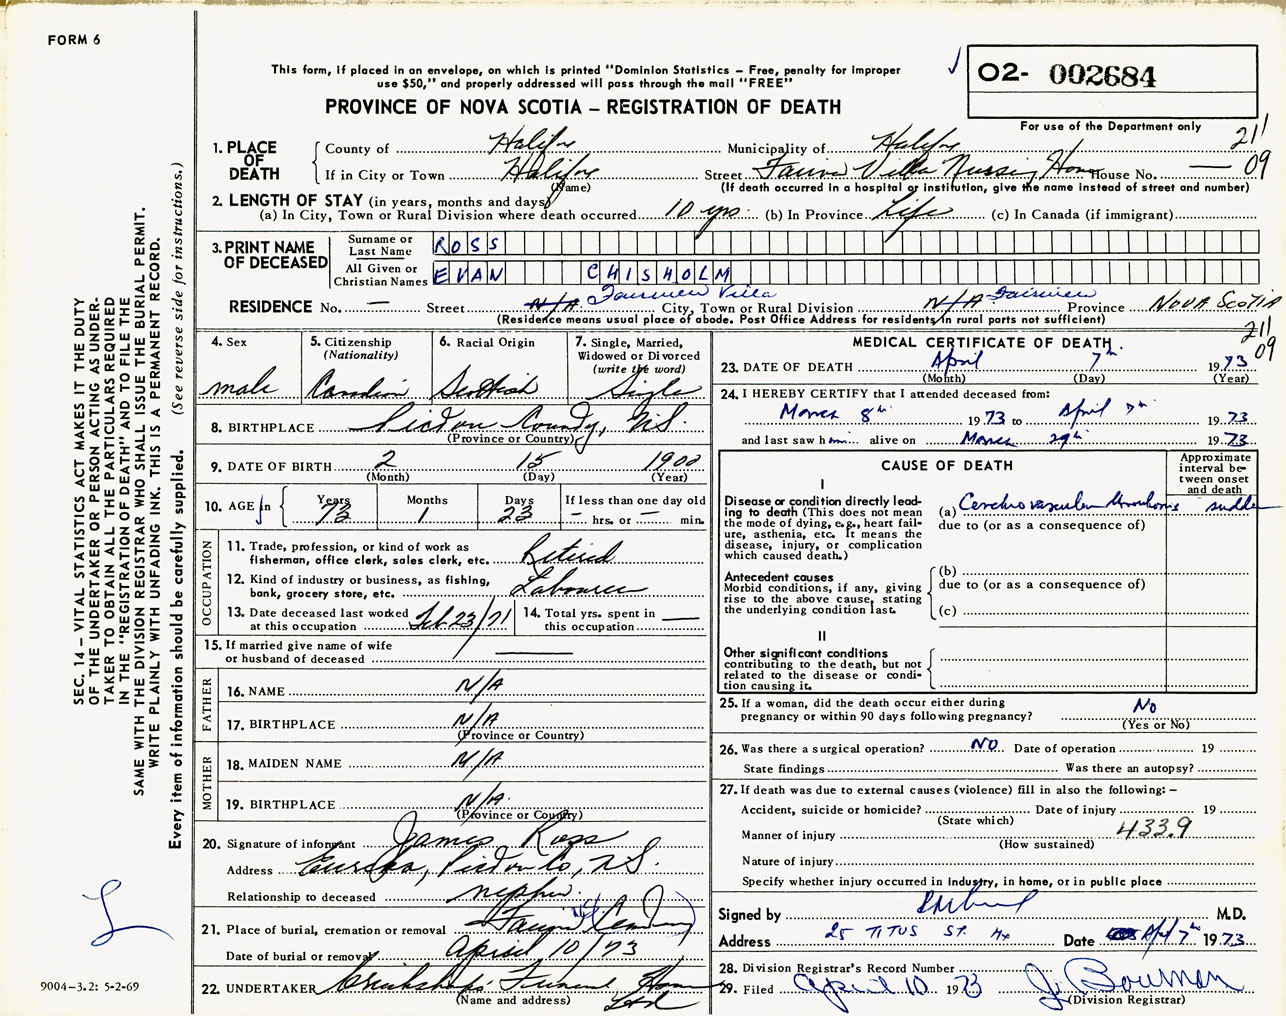 FORM 6
This form, if placed in an envelope, on which is printed "Dominion Statistics – Free, penalty for improper
use $50," and properly addressed will pass through the mail "FREE"
PROVINCE OF NOVA SCOTIA – REGISTRATION OF DEATH
O2- 002684
For use of the Department only
211
09
1. PLACE OF DEATH
County of Halifx Municipality of Halifx
If in City or Town Halifx Street Villa Nursing Home House No. —
(Name) (If death occurred in a hospital or institution, give the name instead of street and number)
2. LENGTH OF STAY (in years, months and days)
(a) In City, Town or Rural Division where death occurred 10 yrs. (b) In Province Life (c) In Canada (if immigrant)
3. PRINT NAME OF DECEASED
Surname or Last Name ROSS
All Given or Christian Names EVAN CHISHOLM
RESIDENCE No. — Street N/A Fairview Villa City, Town or Rural Division N/A Fairview Province NOVA SCOTIA
(Residence means usual place of abode. Post Office Address for residents in rural parts not sufficient)
4. Sex
male
5. Citizenship
(Nationality)
Canadian
6. Racial Origin
Scottish
7. Single, Married,
Widowed or Divorced
(write the word)
Single
8. BIRTHPLACE Pictou County, N.S.
(Province or Country)
9. DATE OF BIRTH 2 15 1900
(Month) (Day) (Year)
10. AGE in
Years Months Days If less than one day old
73 1 23 – hrs. or – min.
OCCUPATION
11. Trade, profession, or kind of work as
fisherman, office clerk, sales clerk, etc. Retired
12. Kind of industry or business, as fishing,
bank, grocery store, etc. Labourer
13. Date deceased last worked
at this occupation Feb 23/71
14. Total yrs. spent in
this occupation —
15. If married give name of wife
or husband of deceased —
FATHER
16. NAME N/A
17. BIRTHPLACE N/A
(Province or Country)
MOTHER
18. MAIDEN NAME N/A
19. BIRTHPLACE N/A.
(Province or Country)
20. Signature of informant James Ross
Address Eureka, Pictou Co, N.S.
Relationship to deceased nephew.
21. Place of burial, cremation or removal
Date of burial or removal April 10/73
22. UNDERTAKER Cruikshanks Funeral Home
(Name and address) Ltd
MEDICAL CERTIFICATE OF DEATH
211
09
23. DATE OF DEATH April 7th 1973
(Month) (Day) (Year)
24. I HEREBY CERTIFY that I attended deceased from:
March 8th 1973 to April 7th 1973
and last saw him alive on March 29th 1973
CAUSE OF DEATH
Approximate
interval be-
tween onset
and death
I
Disease or condition directly lead-
ing to death (This does not mean
the mode of dying, e.g., heart fail-
ure, asthenia, etc. It means the
disease, injury, or complication
which caused death.)
(a) Cerebrovascular Thrombosis sudden
due to (or as a consequence of)
Antecedent causes
Morbid conditions, if any, giving
rise to the above cause, stating
the underlying condition last.
(b)
due to (or as a consequence of)
(c)
II
Other significant conditions
contributing to the death, but not
related to the disease or condi-
tion causing it.
25. If a woman, did the death occur either during
pregnancy or within 90 days following pregnancy? No
(Yes or No)
26. Was there a surgical operation? NO Date of operation 19
State findings Was there an autopsy?
27. If death was due to external causes (violence) fill in also the following: –
Accident, suicide or homicide? Date of injury 19
(State which)
Manner of injury 433.9
(How sustained)
Nature of injury
Specify whether injury occurred in industry, in home, or in public place
Signed by M.D.
Address 25 TITUS ST. Hx Date Apl 7th 1973
28. Division Registrar's Record Number
29. Filed April 10 1973 J. Bowman
(Division Registrar)
SEC. 14 – VITAL STATISTICS ACT MAKES IT THE DUTY
OF THE UNDERTAKER OR PERSON ACTING AS UNDER-
TAKER TO OBTAIN ALL THE PARTICULARS REQUIRED
IN THE "REGISTRATION OF DEATH" AND TO FILE THE
SAME WITH THE DIVISION REGISTRAR WHO SHALL ISSUE THE BURIAL PERMIT.
WRITE PLAINLY WITH UNFADING INK. THIS IS A PERMANENT RECORD.
Every item of information should be carefully supplied. (See reverse side for instructions.)
L
9004–3.2: 5-2-69